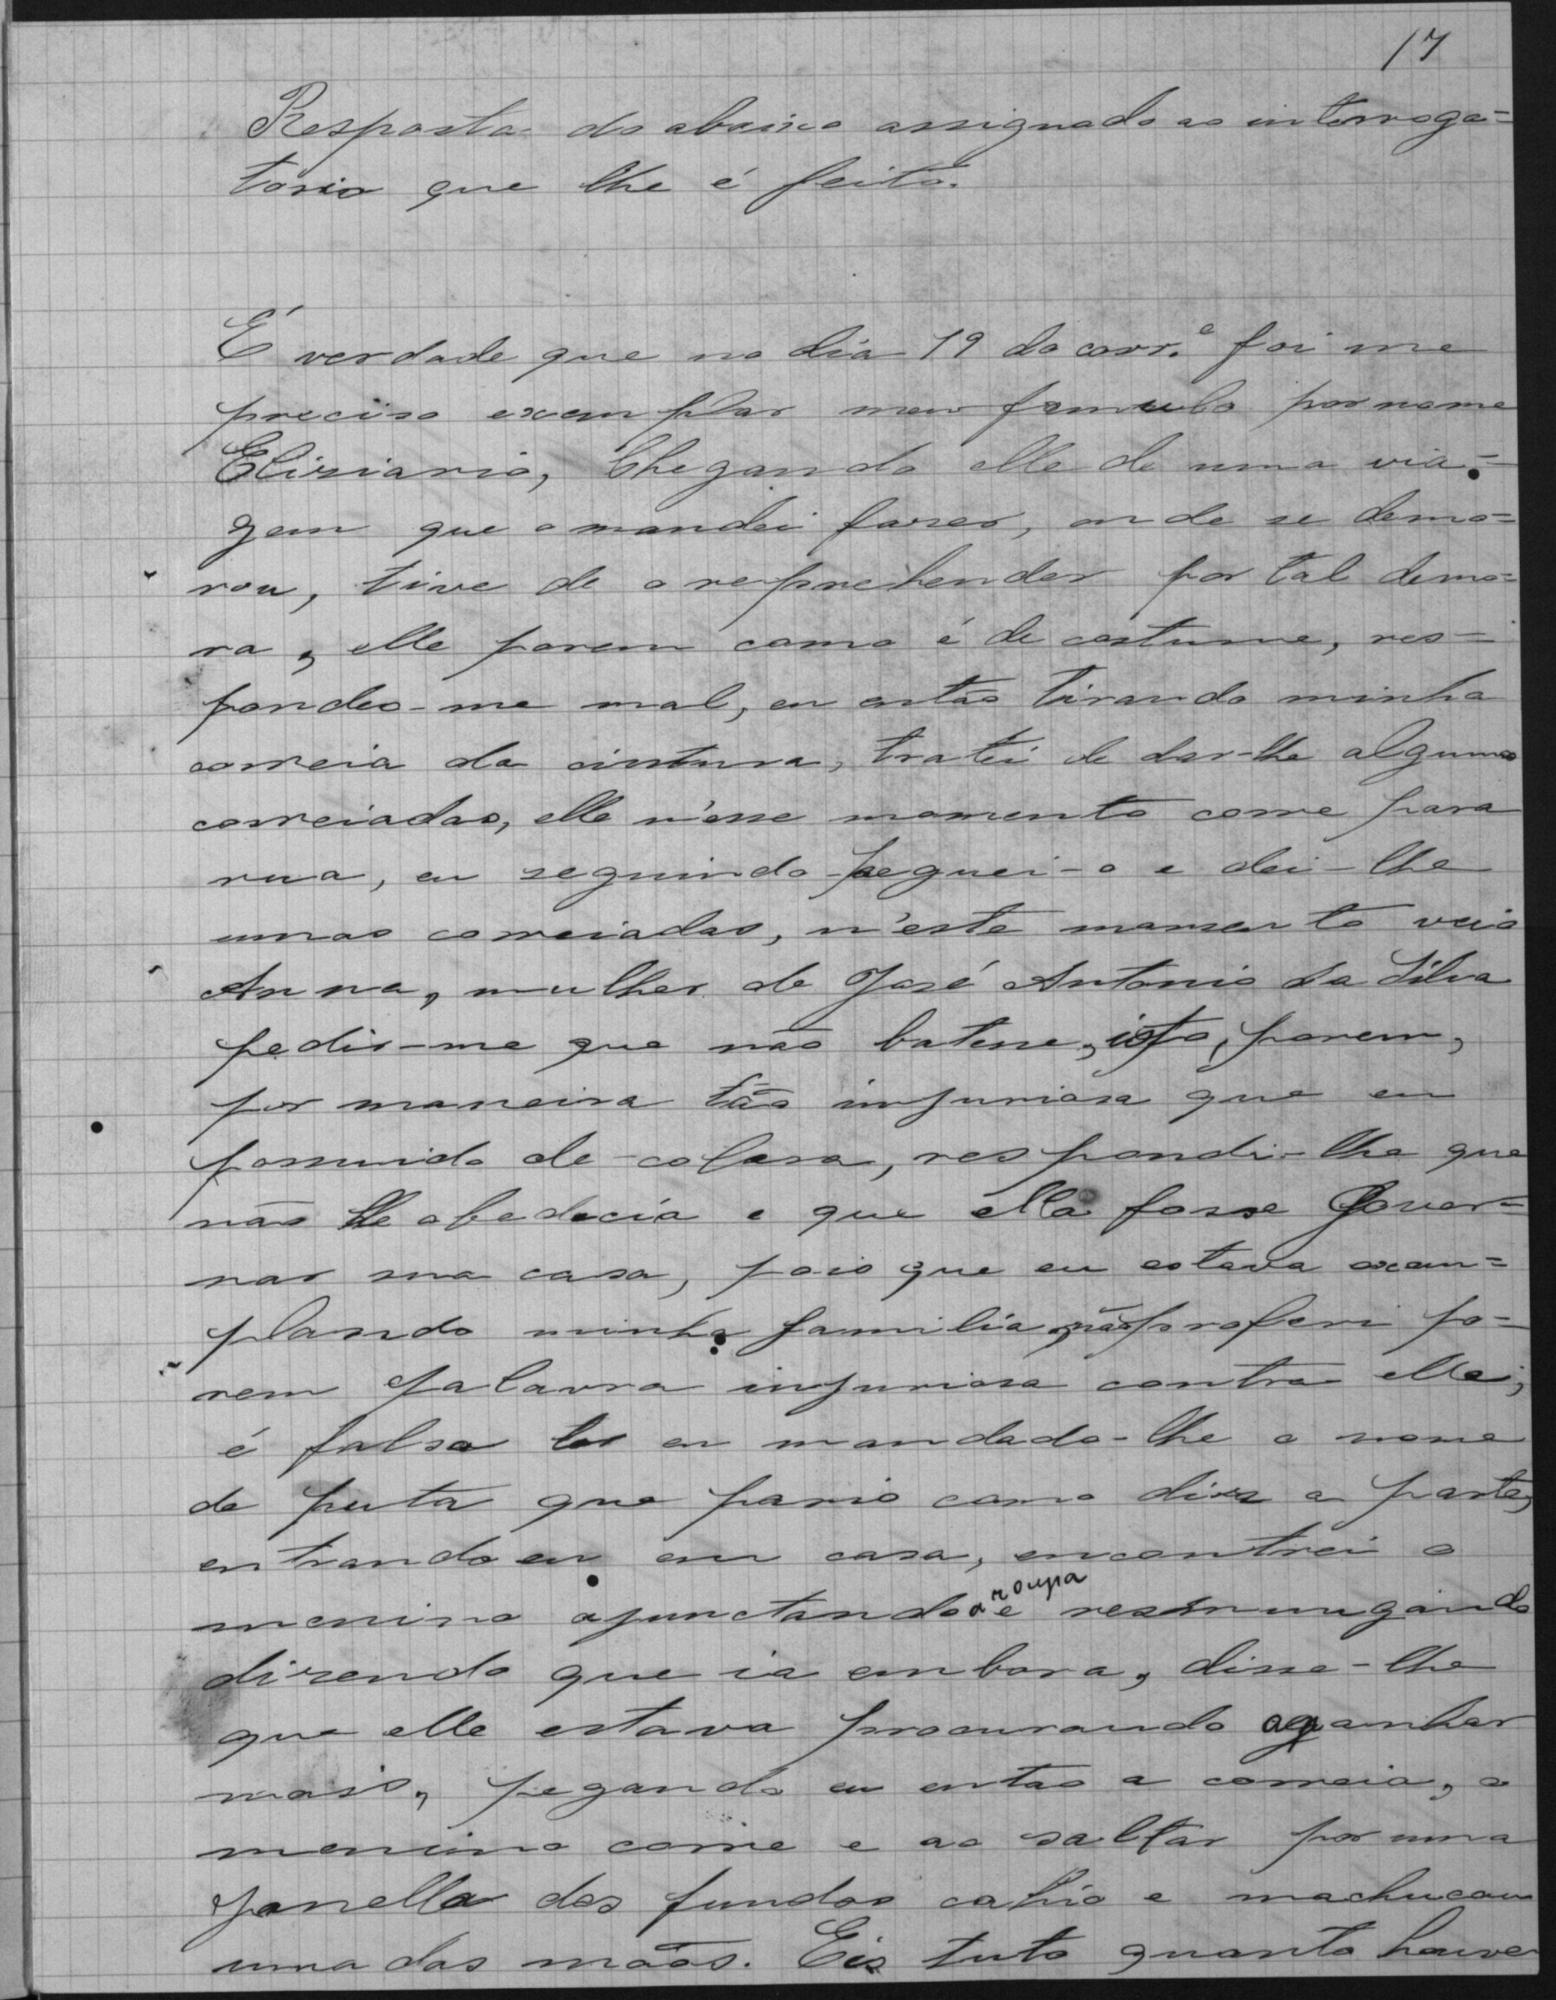 17
Resposta do abaixo assignado ao interroga=
torio que lhe é feito.
É verdade que no dia 19 do corr.e foi me
preciso exemplar meu famulo por nome
Elisiario, Chegando elle de uma via=
gem que o mandei fazer, onde se demo=
rou, tive de o reprehender por tal demo=
ra, elle porem como é de costume, res=
pondeo-me mal, eu então tirando minha
correia da cintura, tratei de dar-lhe algumas
correiadas, elle n'esse momento corre para
rua, eu seguindo peguei-o e dei-lhe
umas correiadas, n'este momento veio
Anna, mulher de José Antonio da Silva
pedir-me que não batesse, isto, porem,
por maneira tão injuriosa que eu
possuido de colera, respondi-lhe que
não lhe obedecia e que ella fosse Gover=
nar sua casa, pois que eu estava exem=
plando minha familia, não proferi po=
rem palavra injuriosa contra ella;
é falso ter eu mandado-lhe o nome
de puta que pario como diz a parte,
entrando eu em casa, encontrei o
menino ajunctando a roupa e resmungando
dizendo que ia embora, disse-lhe
que elle estava procurando apanhar
mais, pegando eu então a correia, o
menino corre e ao saltar por uma
janella dos fundos cahio e machucou
uma das mãos. Eis tuto quanto houve